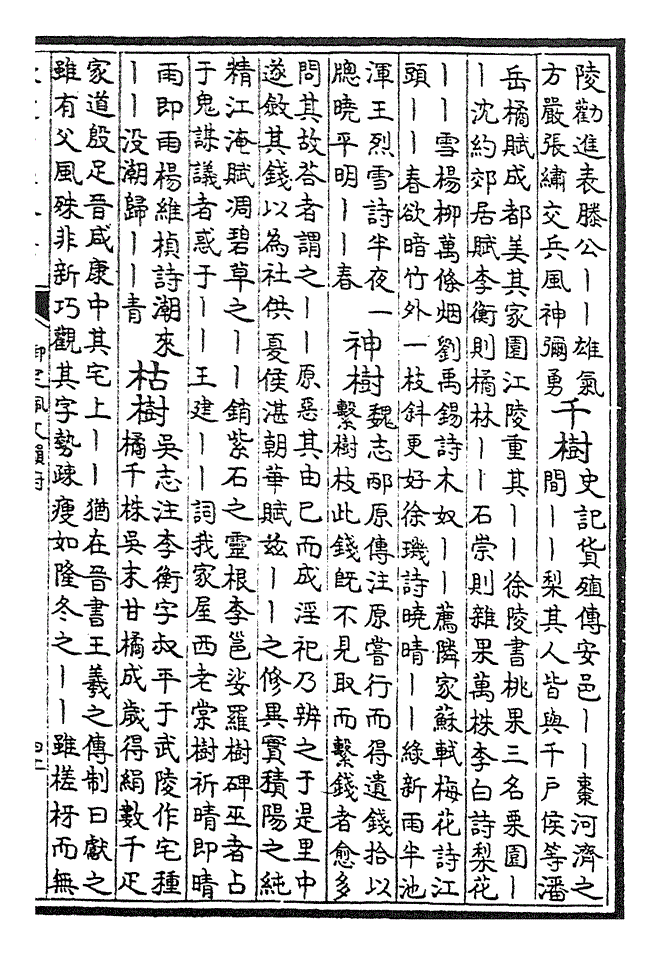 陵勸進表滕公丨丨雄氣
方嚴張繡交兵風神彌勇
千樹
史記貨殖傳安邑丨丨棗河濟之
間丨丨梨其人皆與千戸侯等潘
岳橘賦成都美其家園江陵重其丨丨徐陵書桃果三名栗園丨
丨沈約郊居賦李衡則橘林丨丨石崇則雜果萬株李白詩梨花
丨丨雪楊柳萬條烟劉禹錫詩木奴丨丨薦隣家蘇軾梅花詩江
頭丨丨春欲暗竹外一枝斜更好徐璣詩曉晴丨丨綠新雨半池
渾王烈雪詩半夜一
牕曉平明丨丨春
神樹
魏志邴原傳注原嘗行而得遺錢拾以
繫樹枝此錢旣不見取而繫錢者愈多
問其故荅者謂之丨丨原惡其由已而成淫祀乃辨之于是里中
遂斂其錢以為社供夏侯湛朝華賦兹丨丨之修異實積陽之純
精江淹賦凋碧草之丨丨銷紫石之靈根李邕娑羅樹碑巫者占
于鬼謀議者惑于丨丨王建丨丨詞我家屋西老棠樹祈晴即晴
雨即雨楊維楨詩潮來
丨丨没潮歸丨丨青
枯樹
吳志注李衡字叔平于武陵作宅種
橘千株吳末甘橘成歲得絹數千疋
家道殷足晉咸康中其宅上丨丨猶在晉書王羲之傳制曰獻之
雖有父風殊非新巧觀其字勢疎瘦如隆冬之丨丨雖槎枒而無